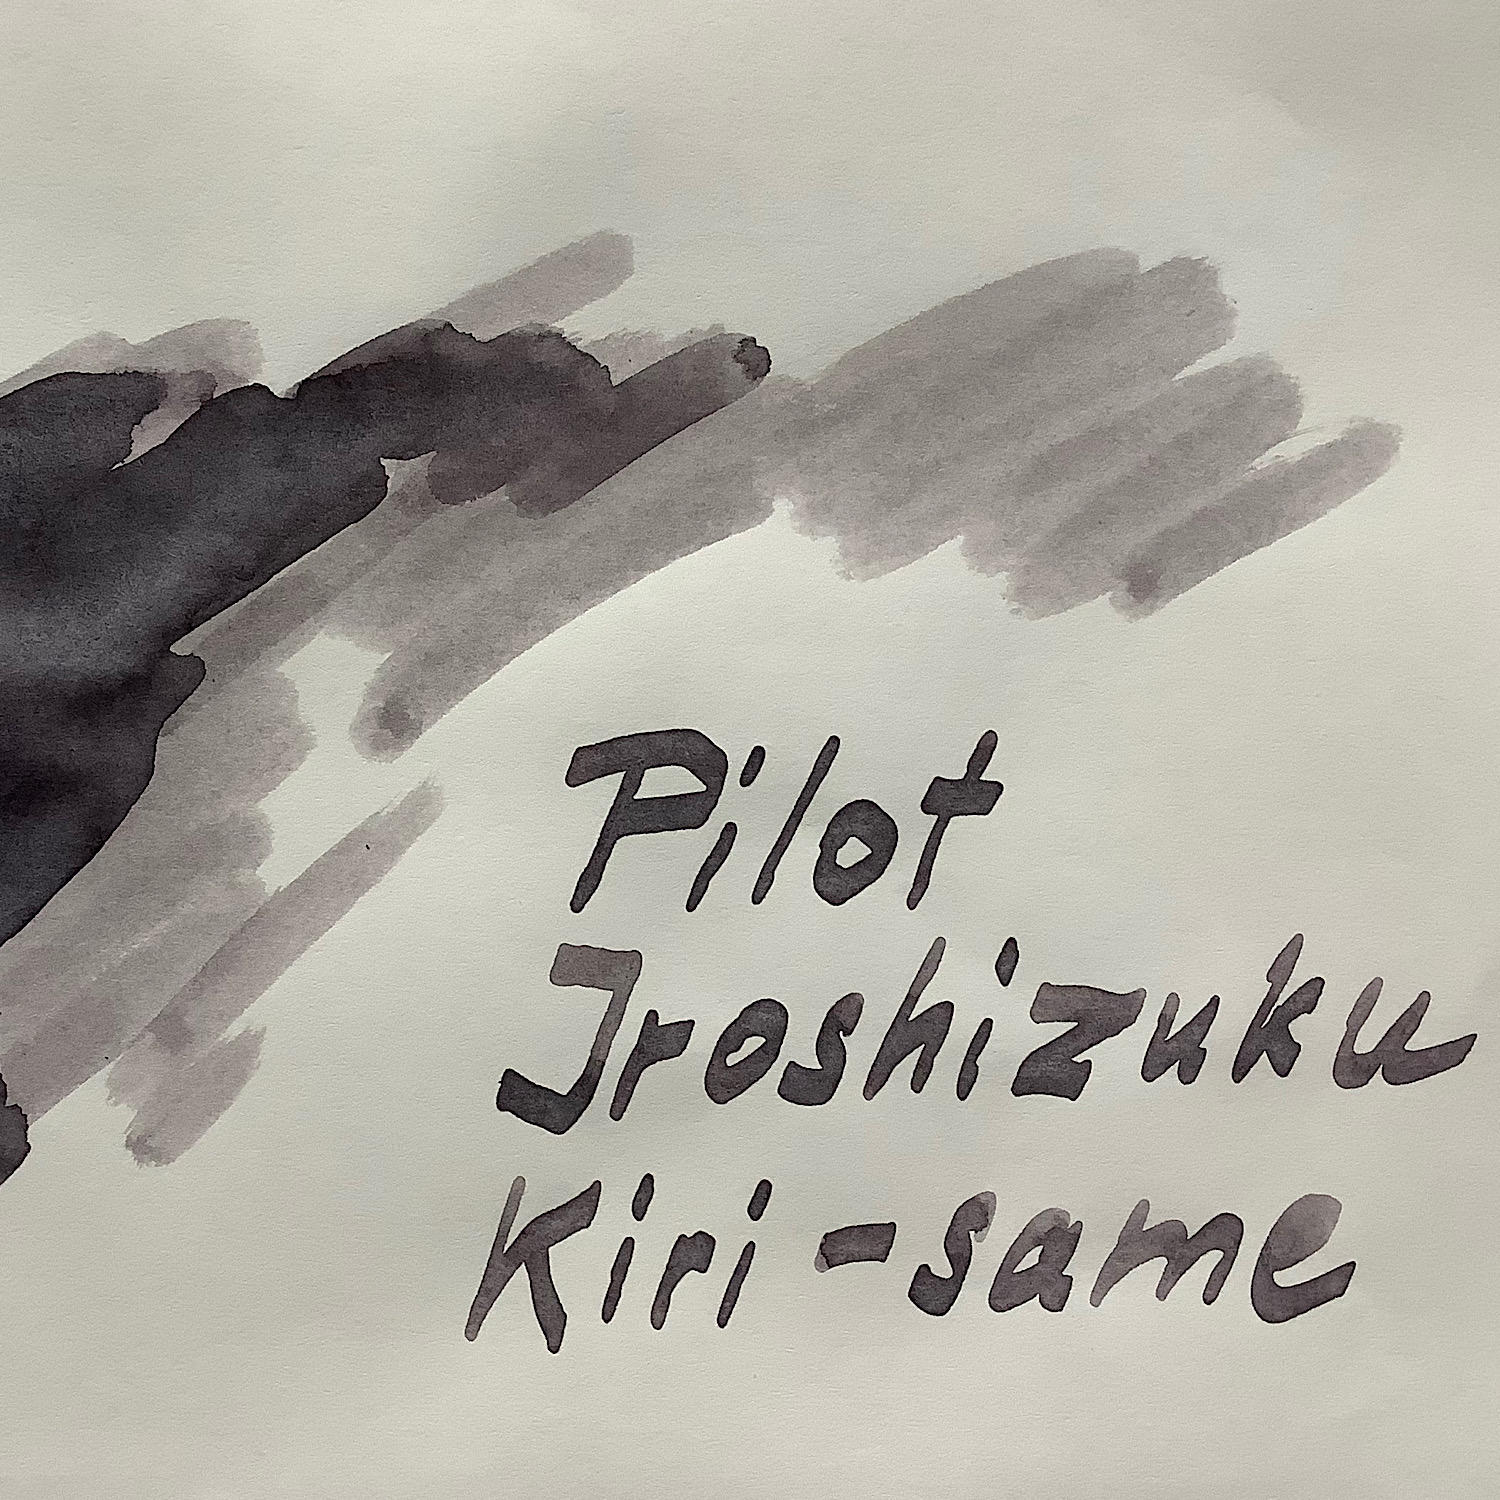 Pilot
Iroshizuku
Kiri-same